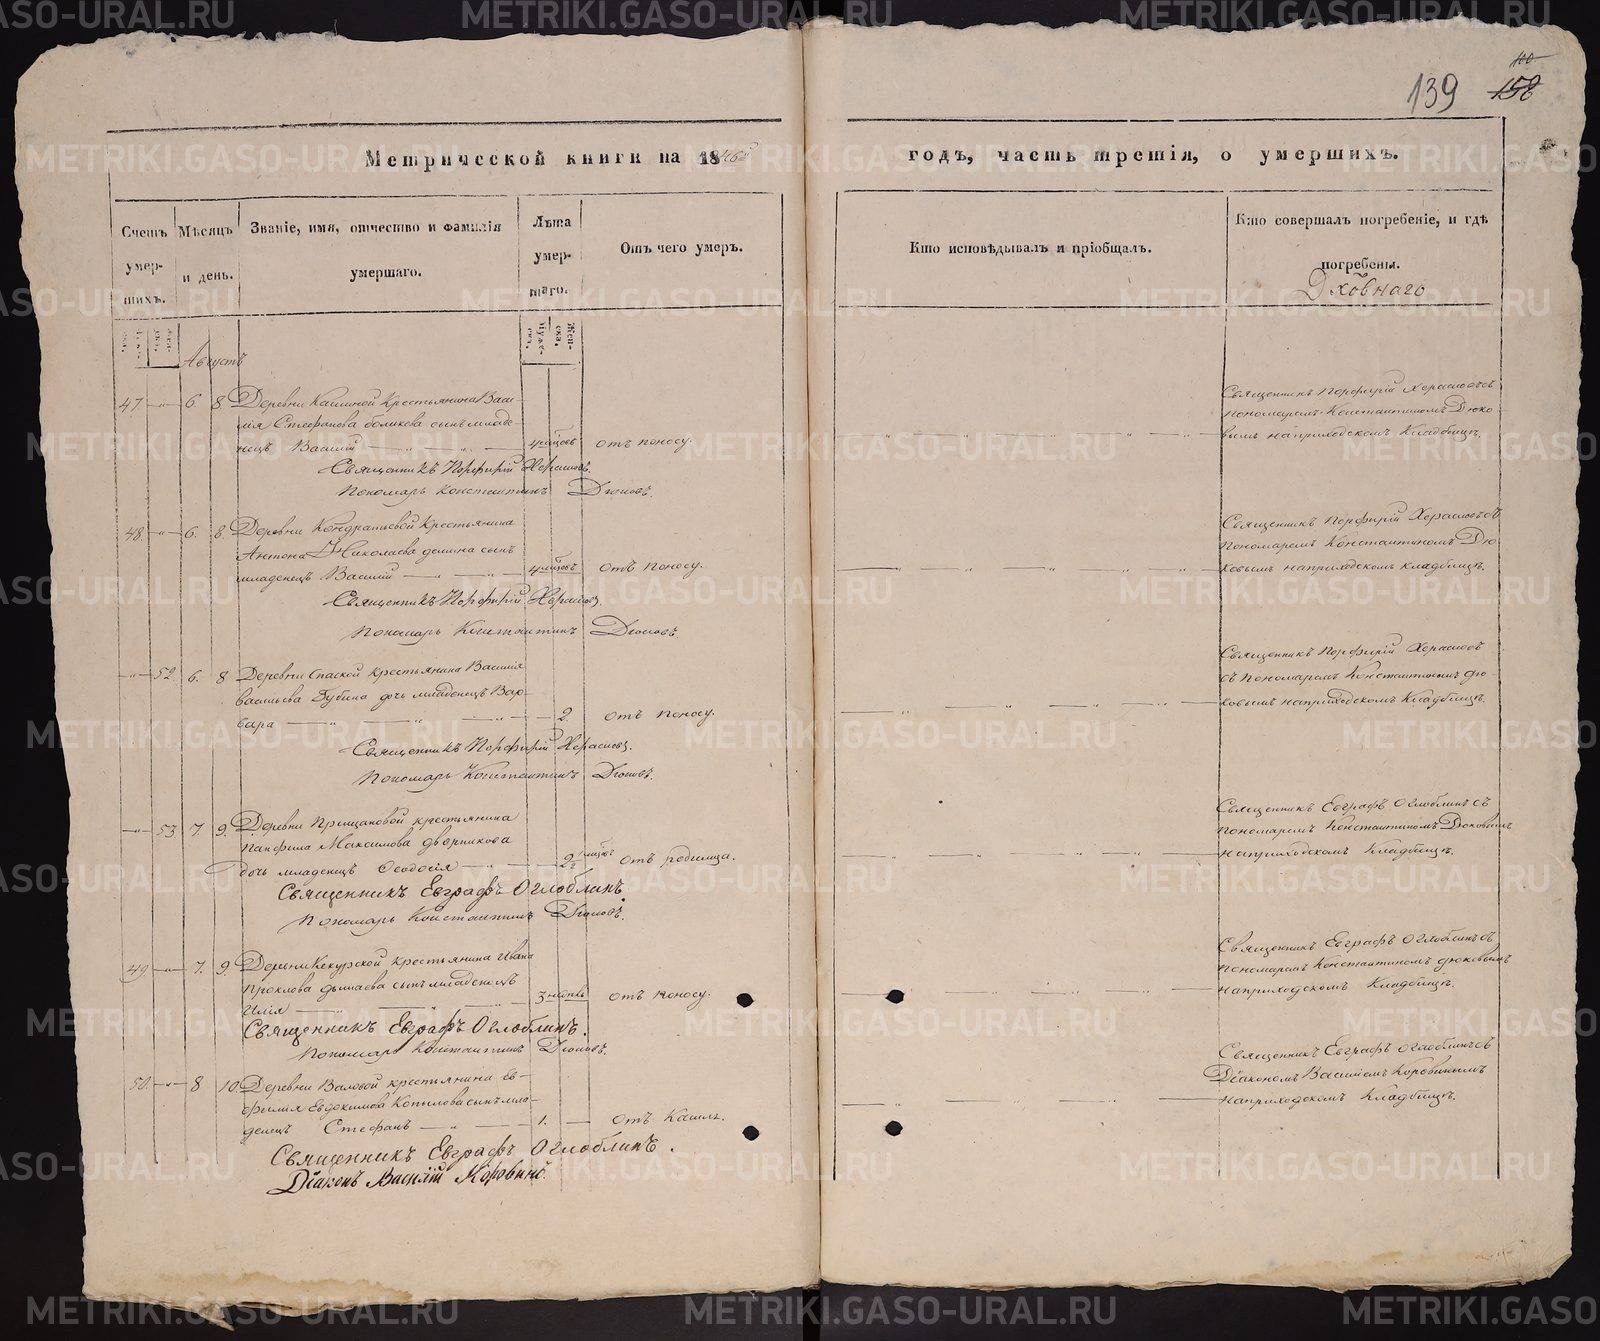 139 158
100
Метрической книги на 1846й
годъ, часть третія, о умершихъ.
Счетъ умер-шихъ.
Мѣсяцъ и день.
Званіе, имя, отчество и фамилія умершаго.
Лѣта умер-шаго.
Отъ чего умеръ.
Кто исповѣдывалъ и пріобщалъ.
Кто совершалъ погребеніе, и гдѣ погребены.
Августъ
47 — 6. 8 Деревни крестьянина Васи-
лія Стефанова сынъ младе-
нецъ Василій 4 мѣсцовъ отъ поносу.
Священникъ Порфирій Херасковъ.
Пономарь Константинъ Дюковъ.
Священникъ Порфирій Херасковъ съ
пономаремъ Константиномъ Дюко-
вымъ на приходскомъ кладбищѣ.
48 — 6. 8. Деревни Кондратьевой крестьянина
Антона Николаева сынъ
младенецъ Василій 4 мѣсцовъ отъ поносу.
Священникъ Порфирій Херасковъ.
Пономарь Константинъ Дюковъ.
Священникъ Порфирій Херасковъ съ
пономаремъ Константиномъ Дю-
ковымъ на приходскомъ кладбищѣ.
— 52 6. 8 Деревни Спаской крестьянина Василія
Васильева Губина дочь младенецъ Вар-
вара 2. отъ поносу.
Священникъ Порфирій Херасковъ.
Пономарь Константинъ Дюковъ.
Священникъ Порфирій Херасковъ
съ пономаремъ Константиномъ Дю-
ковымъ на приходскомъ кладбищѣ.
— 53 7. 9. Деревни крестьянина
Панфила Максимова Дворникова
дочь младенецъ Ѳеодосія отъ родимца.
Священникъ Евграфъ Оглоблинъ
Пономарь Константинъ Дюковъ.
Священникъ Евграфъ Оглоблинъ съ
пономаремъ Константиномъ Дюковымъ
на приходскомъ кладбищѣ.
49 — 7. 9. Деревни Кекурской крестьянина Ивана
Проклова сынъ младенецъ
Илія 3 недѣль отъ поносу.
Священникъ Евграфъ Оглоблинъ.
Пономарь Константинъ Дюковъ.
Священникъ Евграфъ Оглоблинъ съ
пономаремъ Константиномъ Дюковымъ
на приходскомъ кладбищѣ.
50. — 8 10. Деревни Валовой крестьянина Ев-
фимія Евдокимова Копылова сынъ мла-
денецъ Стефанъ 1. отъ кашля.
Священникъ Евграфъ Оглоблинъ.
Діаконъ Василій Коровинъ.
Священникъ Евграфъ Оглоблинъ съ
Діакономъ Василіемъ Коровинымъ
на приходскомъ кладбищѣ.
METRIKI.GASO-URAL.RU